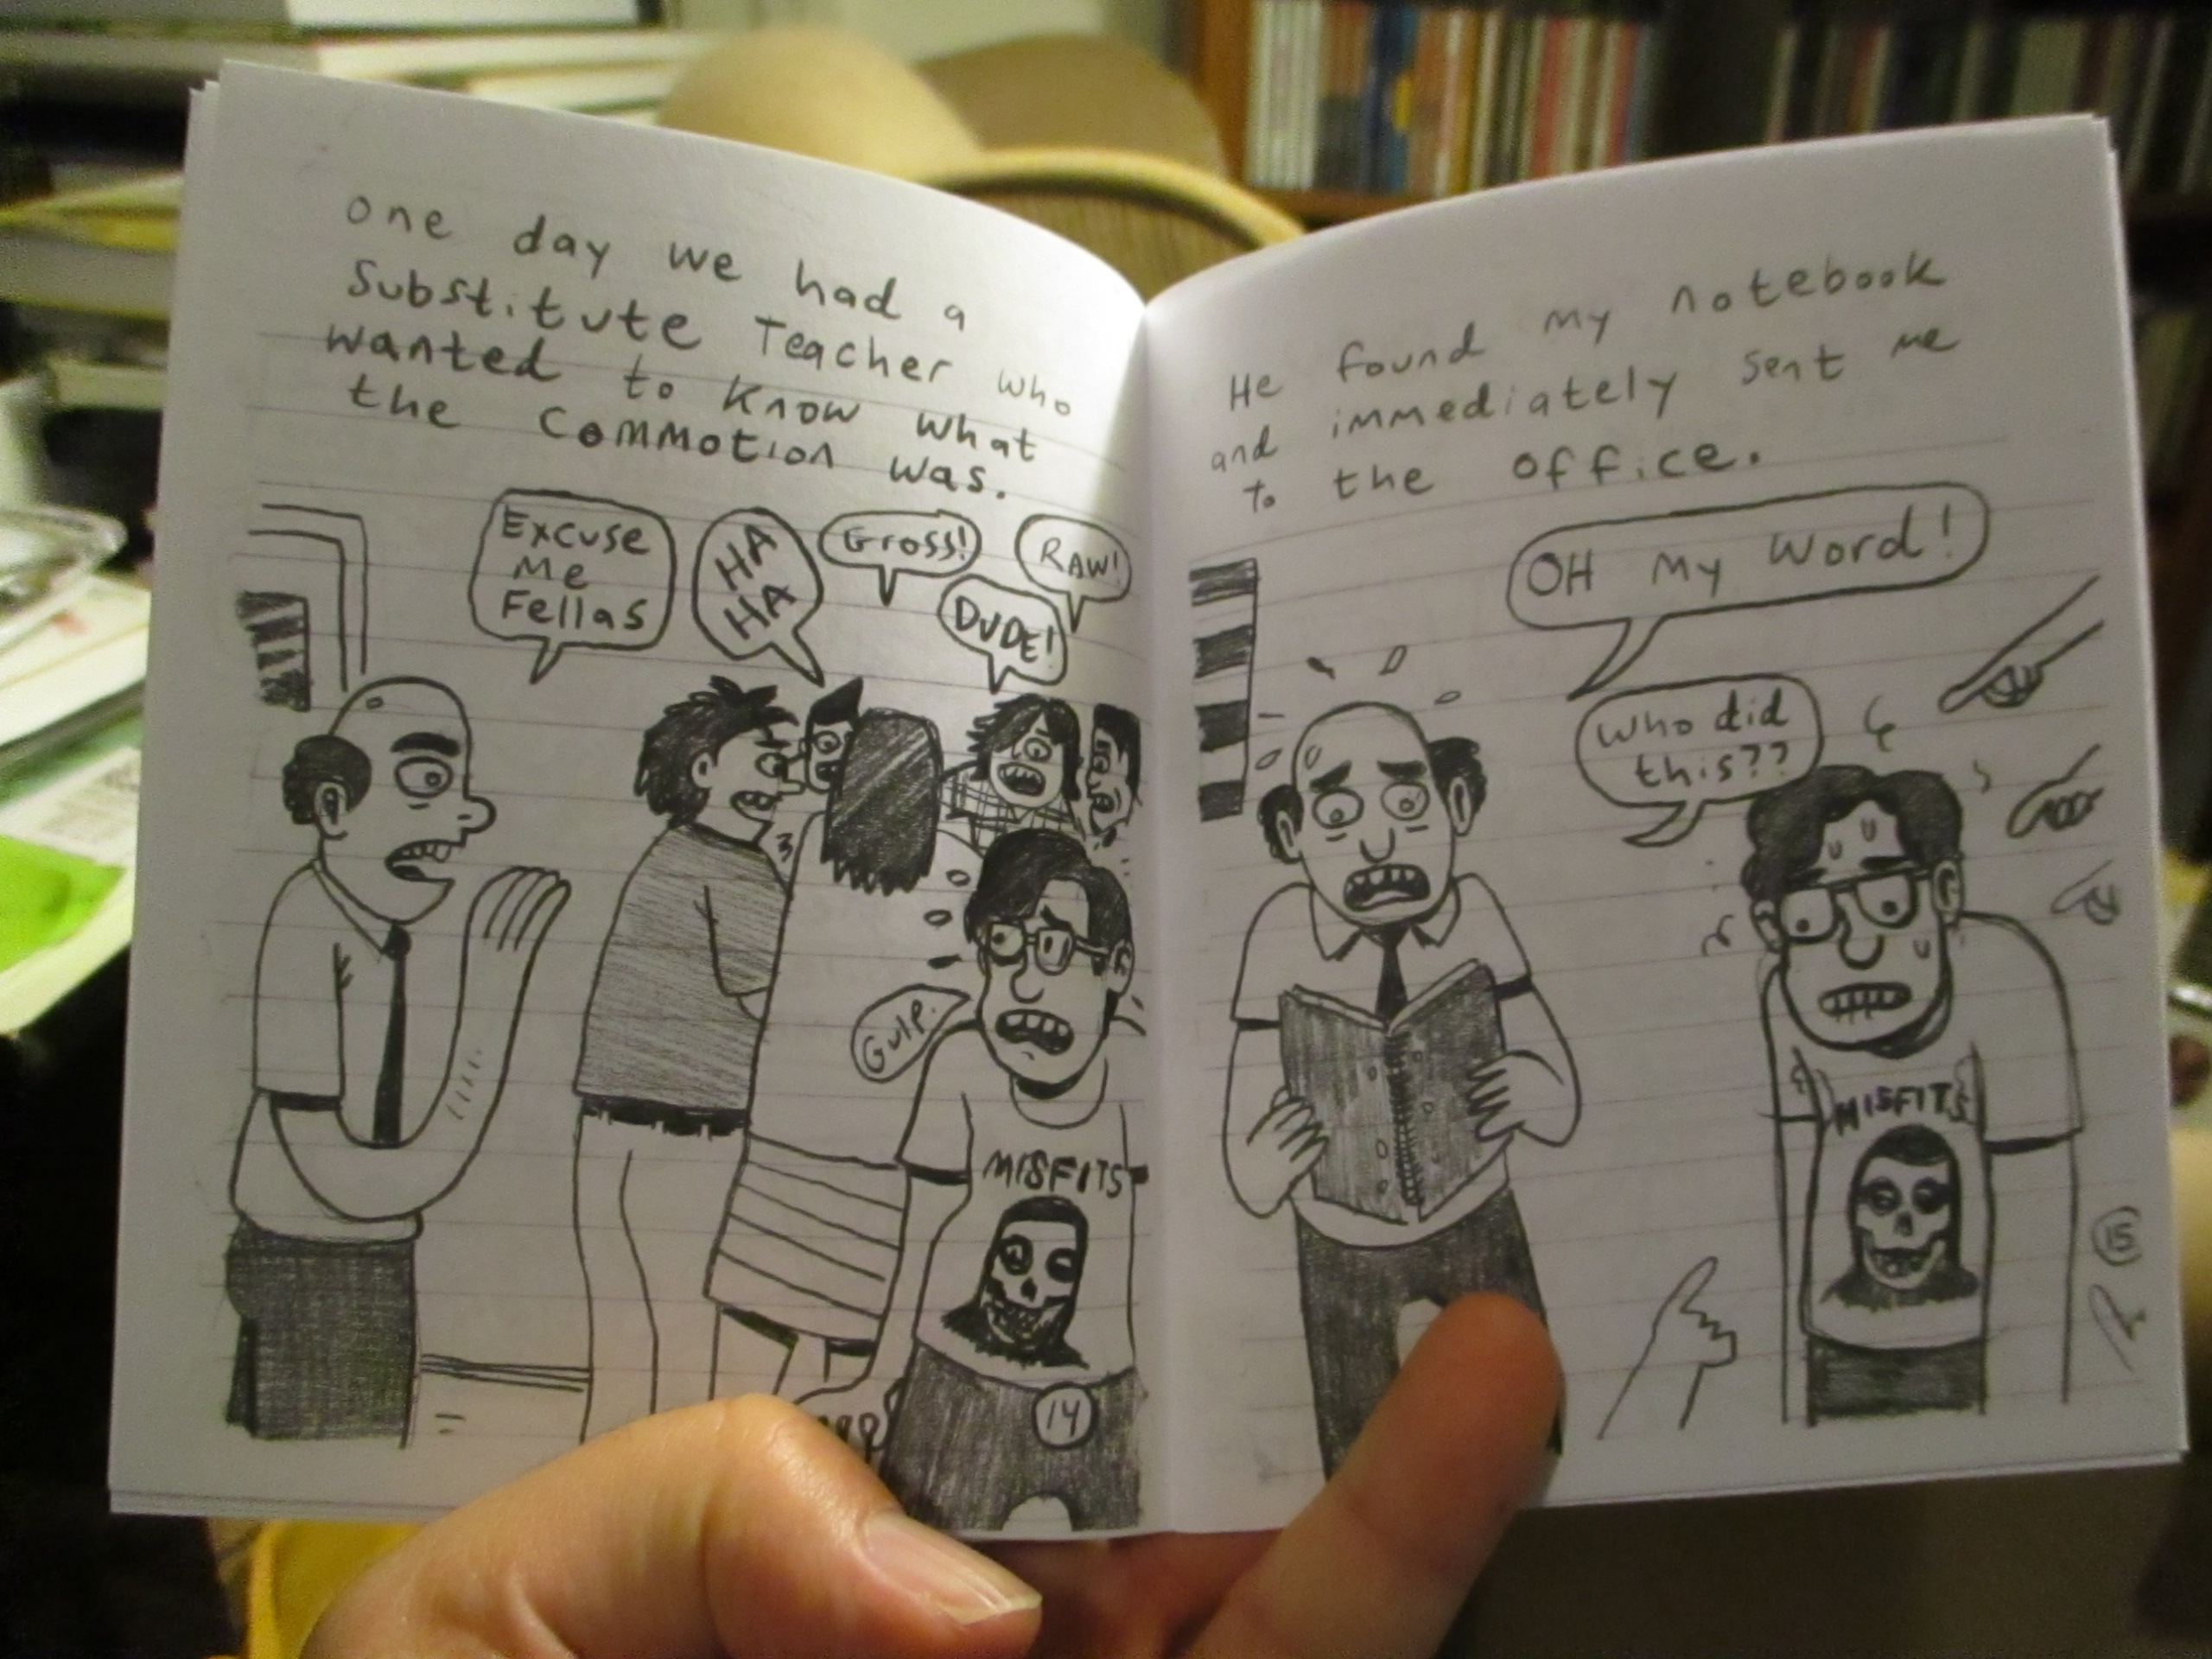 one day we had a
Substitute Teacher who
wanted to know what
the Commotion was.
Excuse
Me
Fellas
HA
HA
Gross!
DUDE!
RAW!
Gulp.
MISFITS
14
He found my notebook
and immediately sent me
to the office.
OH My Word!
Who did
this??
MISFITS
15